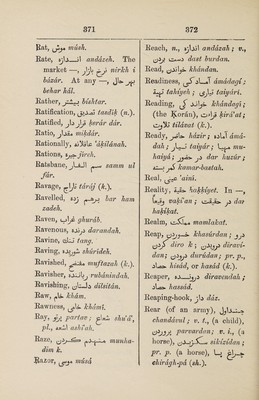 371
Rat, موش músh.
Rate, اندازه andázeh. The
market —, نرخ بازار nirkh i
bázár. At any —, بهر حال
behar hál.
Rather, بیشتر bíshtar.
Ratification, تصدیق tasdíḳ (n.).
Ratified, قرار دار berár dár.
Ratio, مقدار miḳdár.
Rationally, عاقلانه 'áḳilánah.
Rations, جیره jíreh.
Ratsbane, سم الفار samm ul
fár.
Ravage, تاراج táráj (k.).
Ravelled, برهم زده bar ham
zadeh.
Raven, غراب ghuráb.
Ravenous, درنده darandah.
Ravine, تنگ tang.
Raving, شوریده shúrídeh.
Ravished, مفتضه muftazah (k.).
Ravisher, رباینده rubáindah.
Ravishing, دلستان dilsitán.
Raw, خام khám.
Rawness, خامی khámí.
Ray, پرتو partav; شعاع shu'á',
pl., اشعه ashi'ah.
Raze, منهدم کردن munha-
dim k.
Razor, موسی músá
372
Reach, n., اندازه andázah; v.,
دست بردن dast burdan.
Read, خواندن khándan.
Readiness, آمادگی ámádagí;
تهیه tahíyeh; تیاری taiyárí.
Reading, خواندگی khándagí;
(the Ḳorán), قرائت ḳirá'at;
تلاوت tilávat (k.).
Ready, حاضر házir; آماده ámá-
dah; تیار taiyár; مهیا mu-
haiyá; در حضور dar huzúr;
کمر بسته kamar-bastah.
Real, عینی 'ainí.
Reality, حقیقت haḳḳiyet. In —,
واقعا vaḳi'an; در حقیقت dar
haḳíḳat.
Realm, مملکت mamlakat.
Reap, خسوردن khasúrdan; درو
کردن diro k; درویدن diraví-
dan; درودن durúdan; pr. p.,
حصاد hisád, or hasád (k.).
Reaper, درونده diravendah;
حصاد hassád.
Reaping-hook, داز dáz.
Rear (of an army), چنداول
chandávul; v. t., (a child),
پروردن parvardan; v. i., (a
horse), سیخیدن síkízídan;
pr. p. (a horse), چراغ پا
chirágh-pá (sh.).